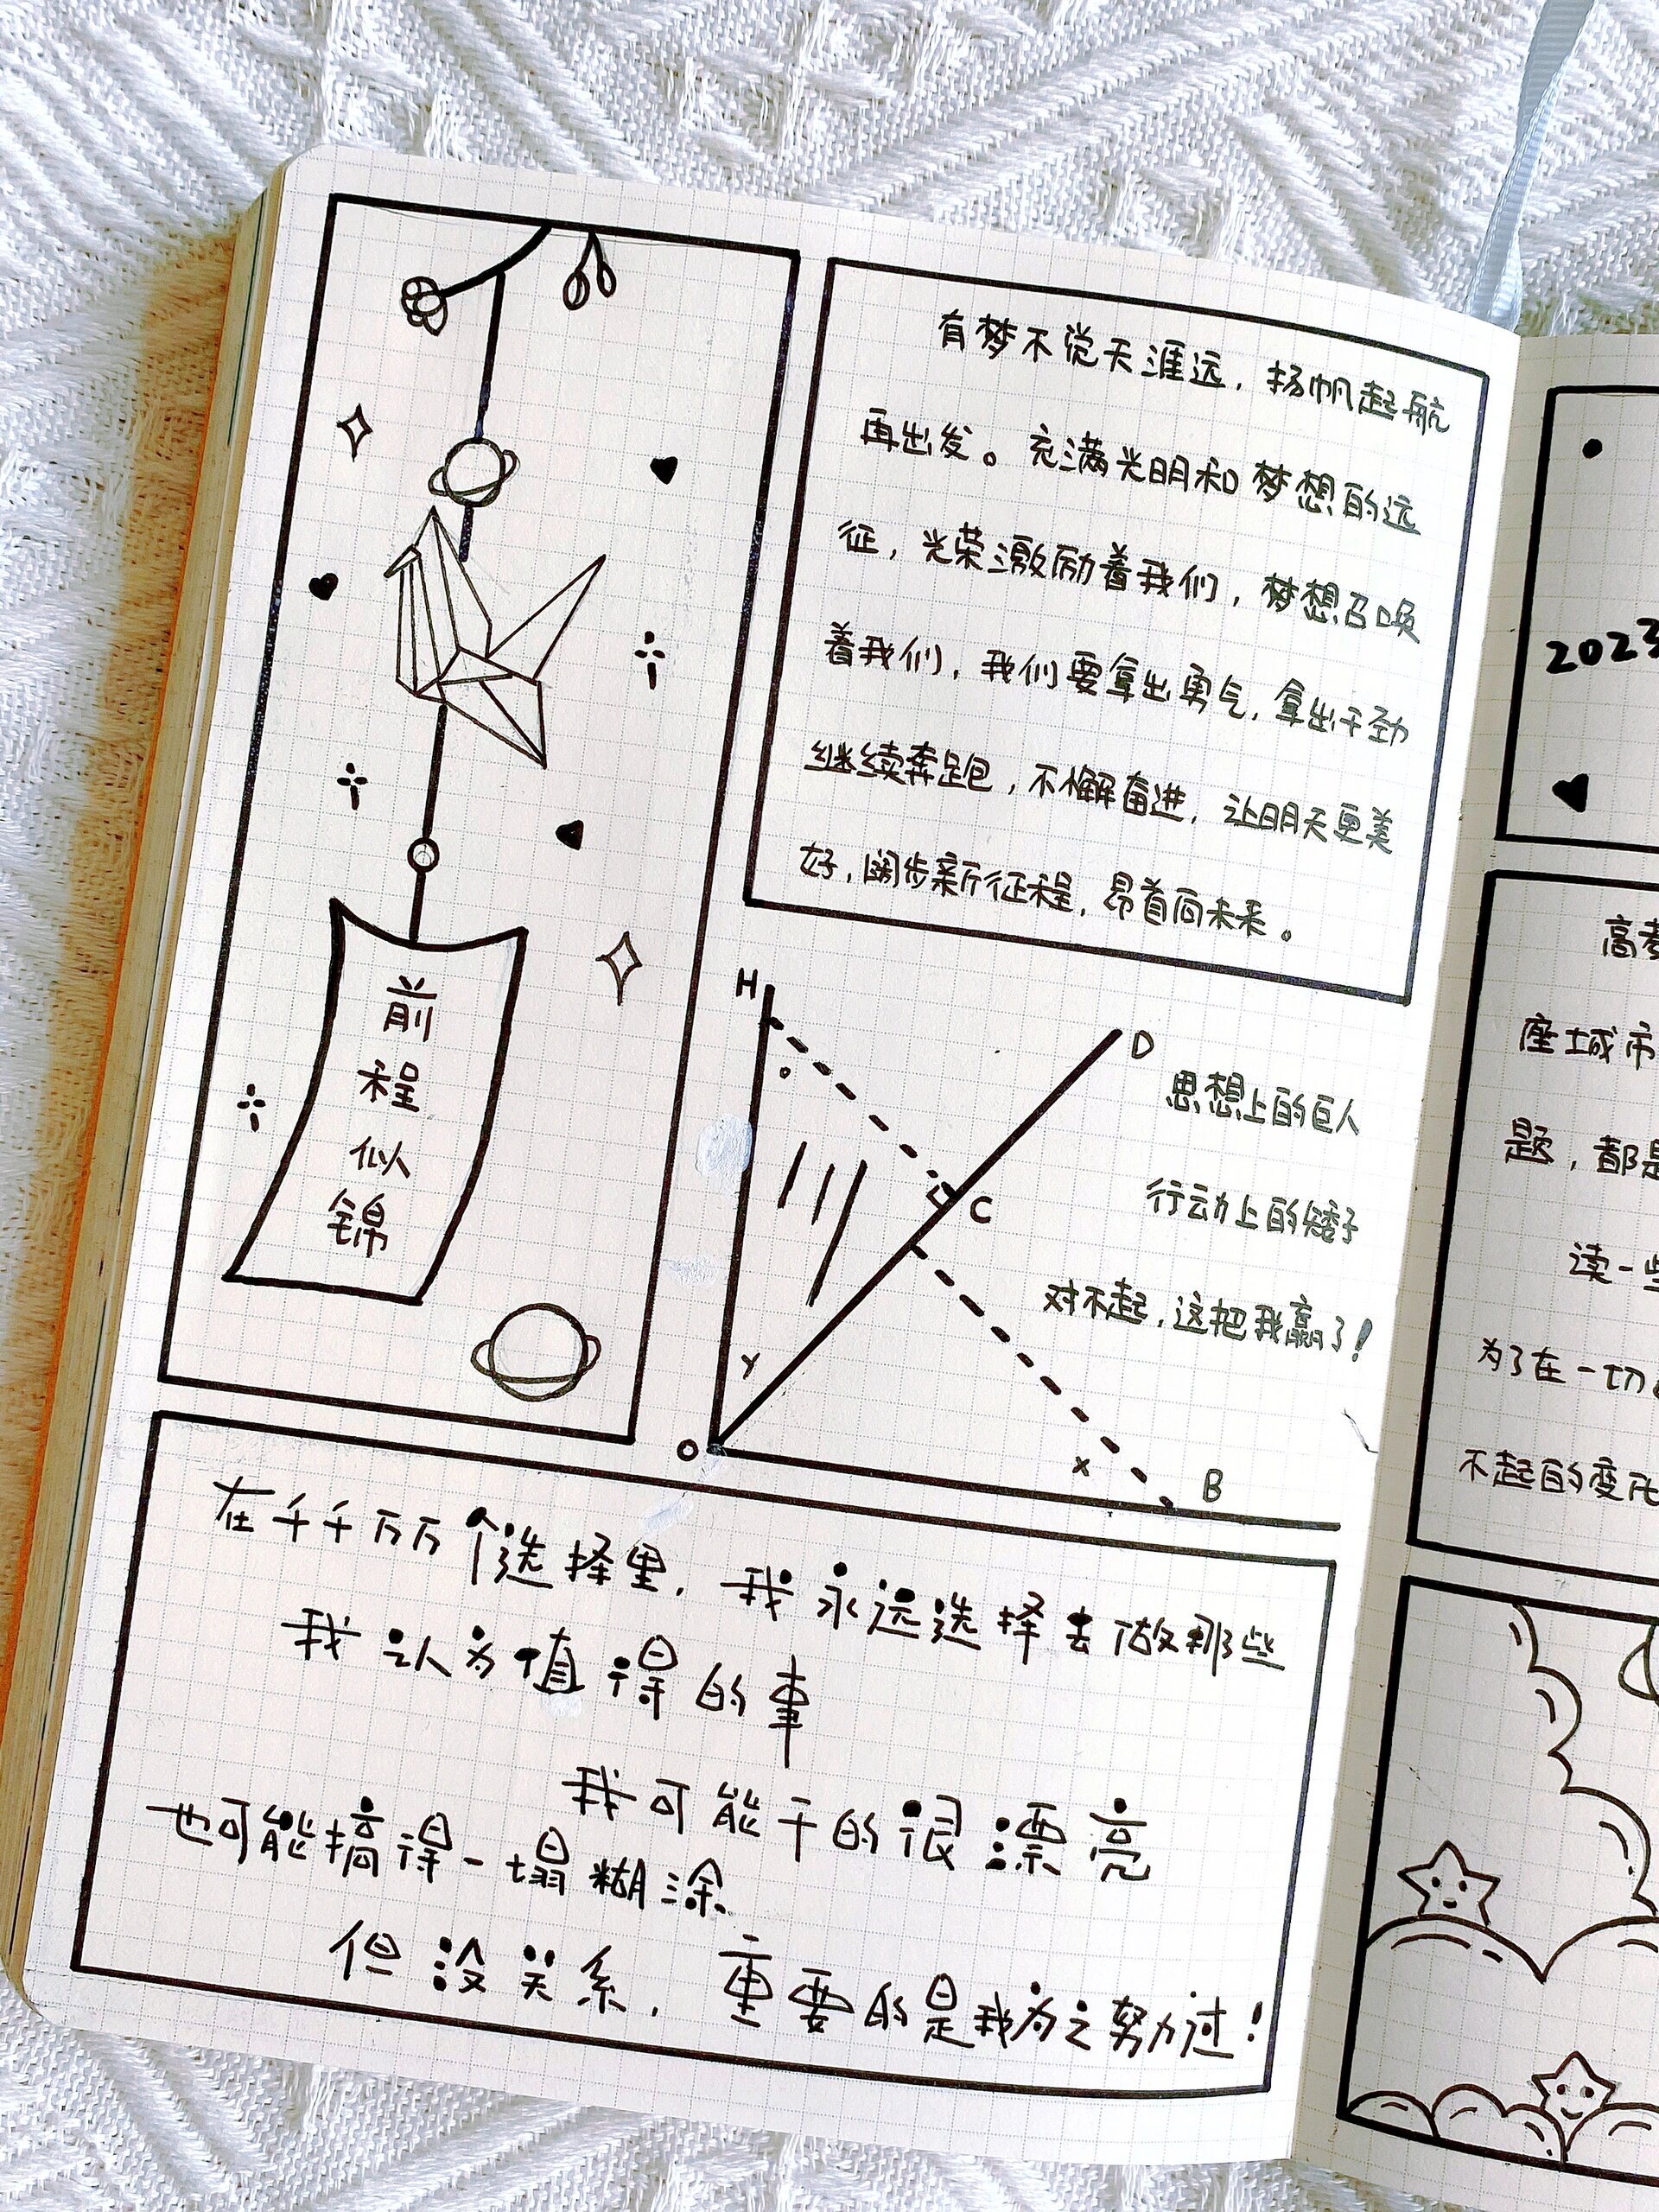 有梦不觉天涯远，扬帆起航
再出发。充满光明和梦想的远
征，光荣激励着我们，梦想召唤
着我们，我们要拿出勇气，拿出干劲
继续奔跑，不懈奋进，让明天更美
好，阔步新征程，昂首向未来。
前
程
似
锦
H
D
C
Y
O
X
B
思想上的巨人
行动上的矮子
对不起，这把我赢了！
在千千万万个选择里，我永远选择去做那些
我认为值得的事
我可能干的很漂亮
也可能搞得一塌糊涂
但没关系，重要的是我为之努力过！
2023
高考
座城市
题，都是
读一些
为了在一切
不起目的变化